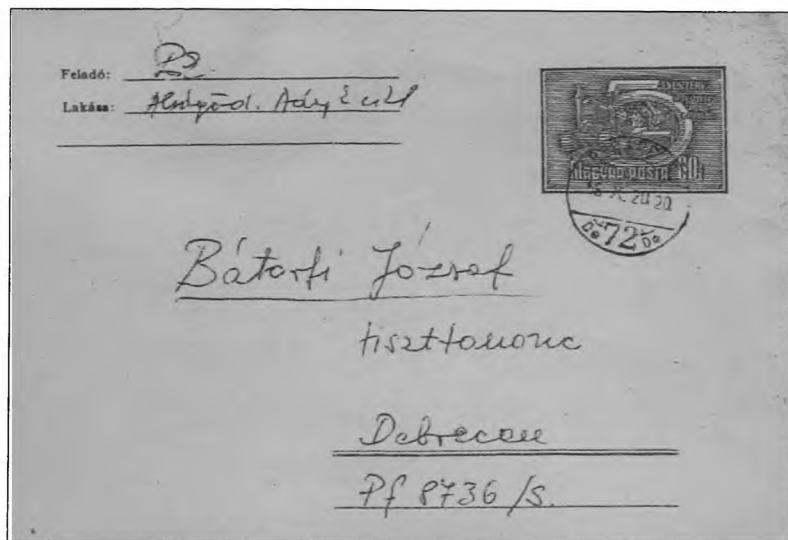 Feladó: PS.
Lakása: Alsógöd. Ady E u 21
MAGYAR POSTA 60f
X. 20 20
72
Bátorfi József
tiszttononc
Debrecen
Pf 8736/S.